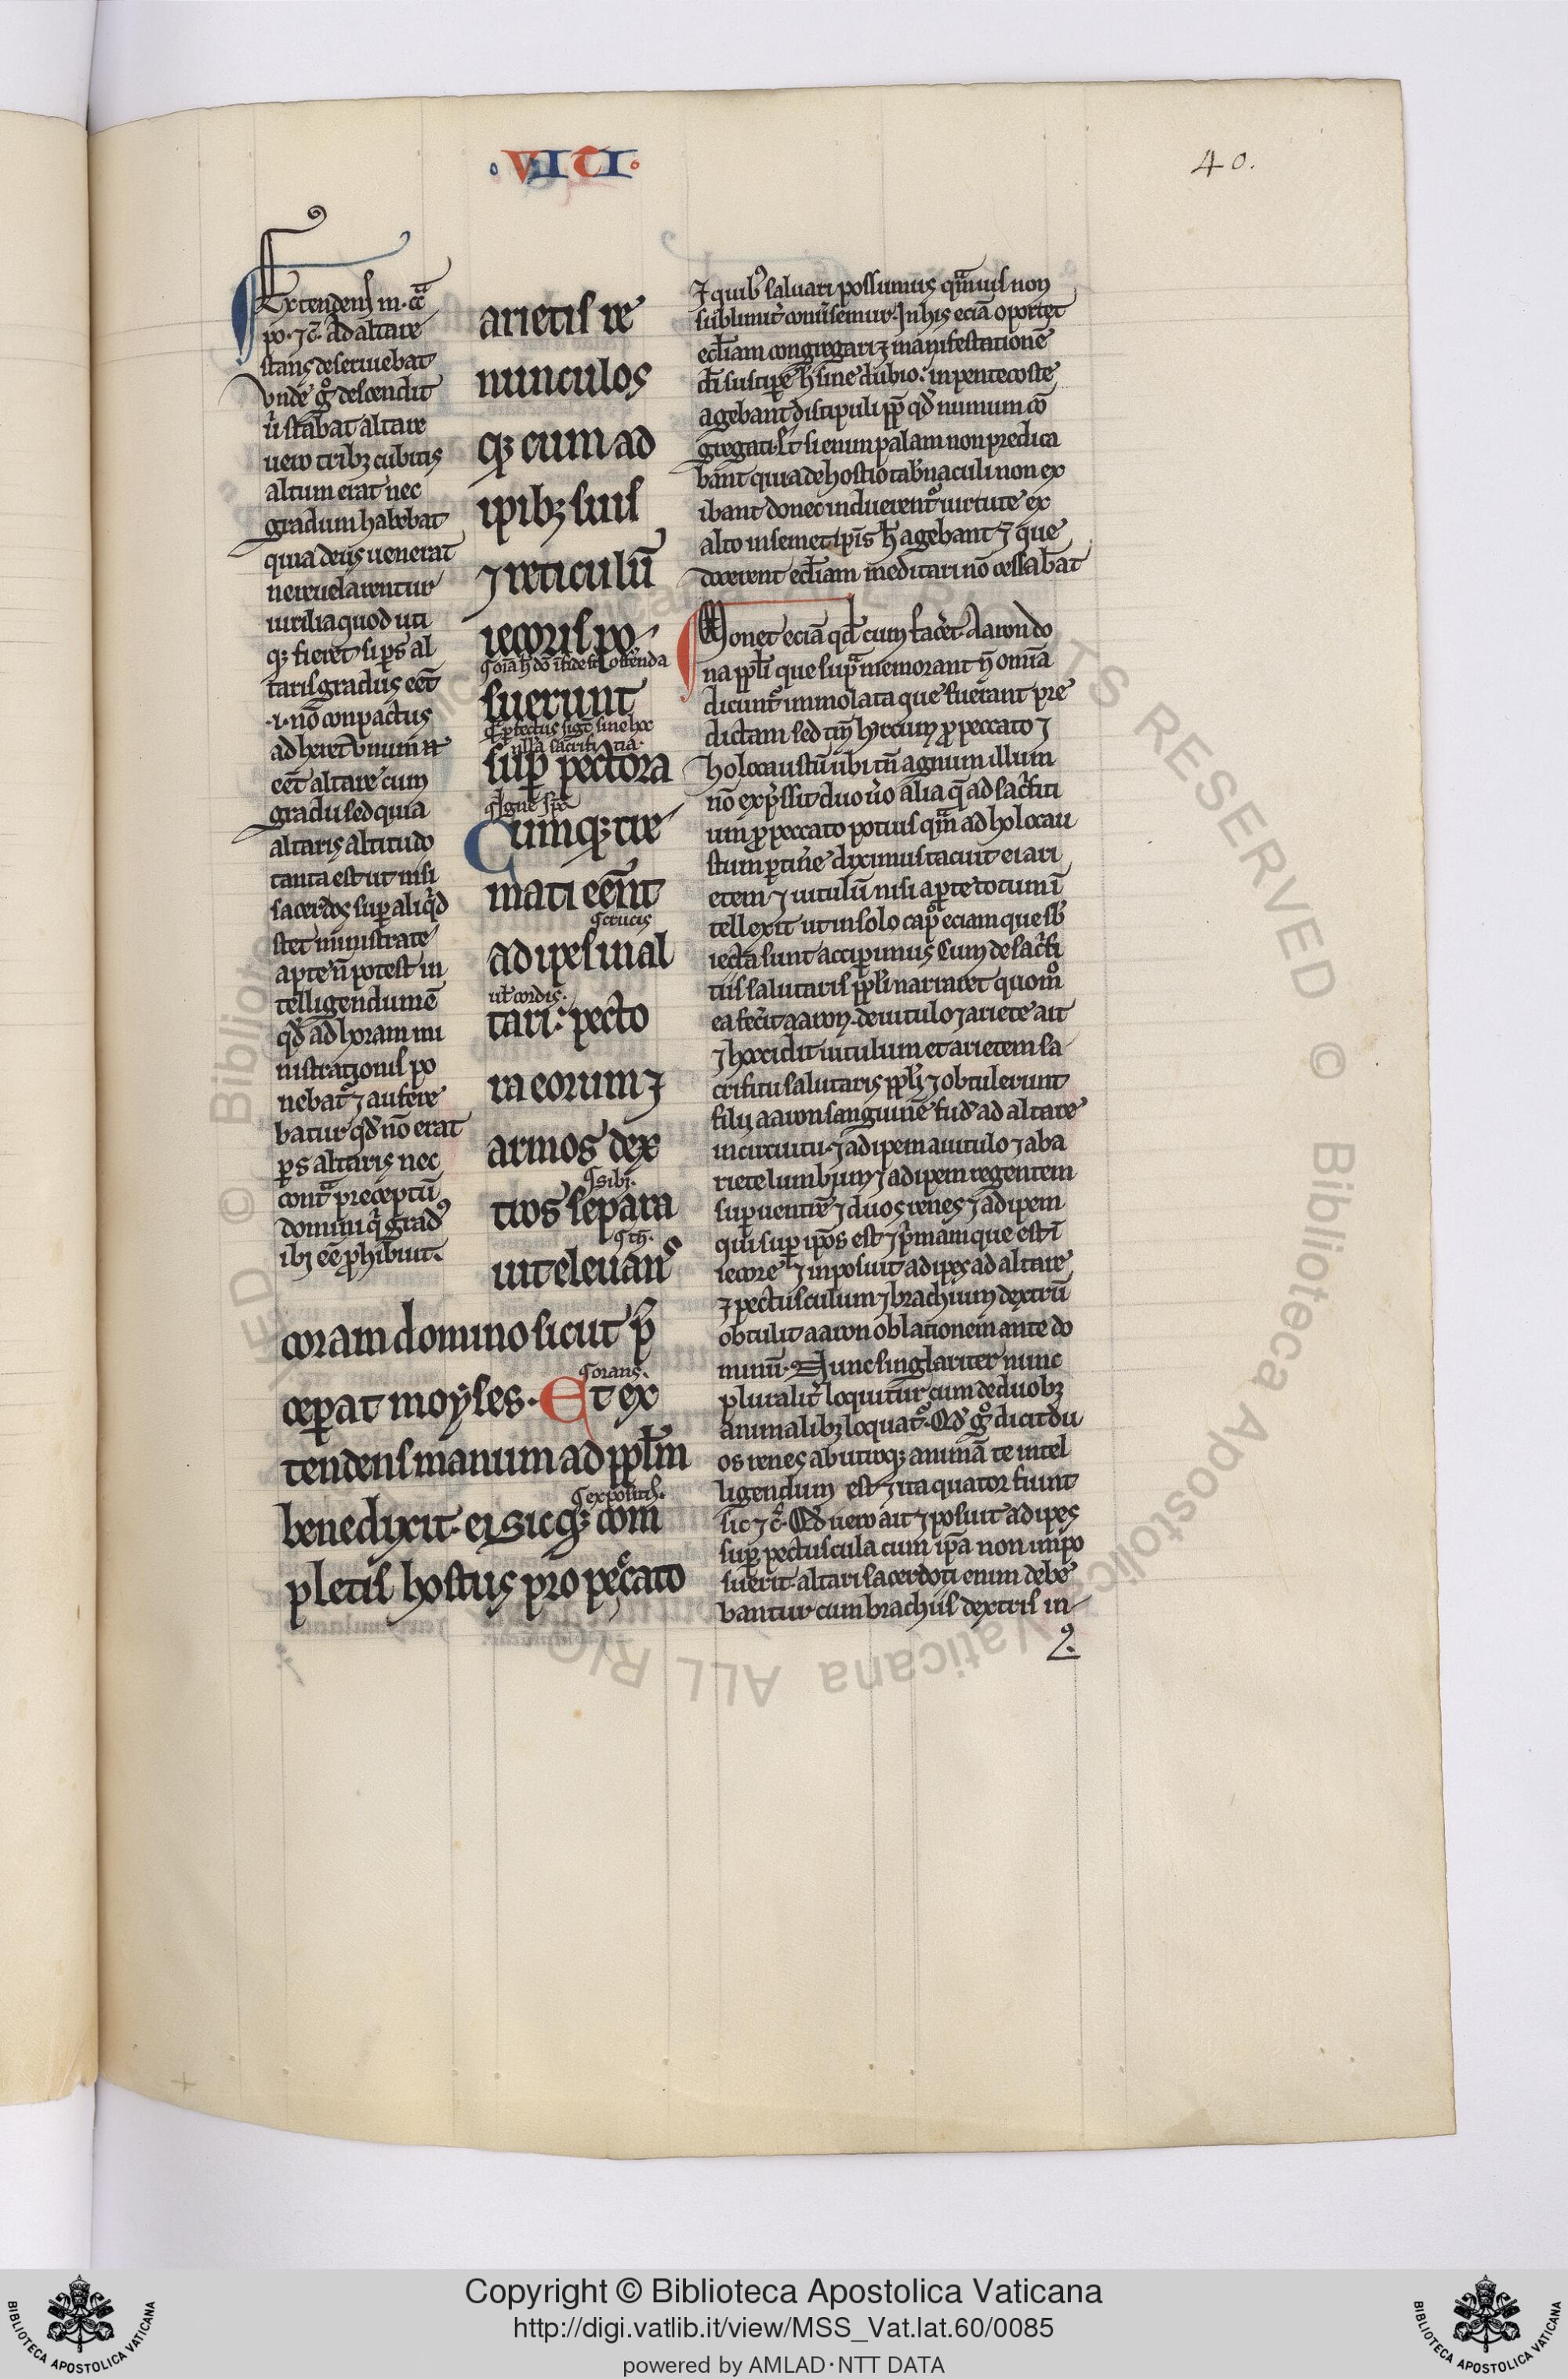 ·VITI·
40.
Extendens in·cͣa
po·⁊c̄· Ad altare
stans deseruiebat
vnde gͦ descendit
ú stabat altare
uero tribꝫ cubitis
altum erat nec
gradum habebat
quia deus uenerat
ne reuelarentur
uirilia quod uti
qꝫ fieret si ꝑs al
taris gradus eēt
·i· nō conpactus
ad hereret
eēt altare cum
gradu sed quia
altaris altitudo
tanta est ut nisi
sacerdos suꝑ aliqͥd
stet ministrare
aperte n̄ potest in
telligendum ē
qd̄ ad horam mi
nistrationis po
nebatͬ ⁊ aufere
batur qd̄ nō erat
ꝑs altaris nec
contͣ preceptū
domini qͥ gradꝰ
ibi eē ꝓhibuit.
arietis re
nunculos
qꝫ cum ad
ipibꝫ suis
⁊ reticulū
iecoris po
suerunt
suꝑ pectora
Cumqꝫ cre
mati eēnt
¶crucis
adipes in al
uł cordis.
tari· pecto
ra eorum ⁊
armos dex
¶sibi.
tros separa
uit eleuanˢ
coram domino sicut p̄
ceperat moyses. Et ex
¶orans.
tendens manum ad ppłm
benedixit· ei Sicqꝫ com
pletis hostiis pro peccato
⁊ quibꝰ saluari possumus qͣmuis non
sublimit̄ conuersemur. In his eciā oportet
ecclīam congregari ⁊ manifestationē
dī suscipe h̄ sine dubio· in pentecoste
agebant discipuli pp̄ qd̄ in unum cō
gregati· Et si enim palam non predica
bant quia de hostio tab̄naculi non ex
ibant donec induerentͬ uirtute ex
alto in semet ip̄is h̄ agebant ⁊ que
docerent ecclīam meditari nō cessabāt
Monet eciā qd̄ cum faceret Aaron do
na ppłi que supͣ memorant n̄ omīa
dicuntͬ immolata que fuerant pre
dictam sed tm̄ hyrcum ꝓ peccato ⁊
holocaustū ubi tn̄ agnum illum
nō exp̄ssit duo ūo alia q̄ ad sacͥfici
um ꝓ peccato potius qͣm ad holocau
stum ꝑtinē diximus tacuit ei ari
etem ⁊ uitulū nisi aperte totum ī
tellexit ut in solo capͦ eciam que sb̄
iecta sunt accipimus Cum de sacͥfi
tiis salutaris ppłi narraret quomͦ
ea fecit aaron. de uitulo ⁊ ariete ait
⁊ hoccidit uitulum et arietem sa
crificii salutaris ppłi ⁊ obtulerunt
filii aaron sanguinē fud̄ ad altare
in circuitu· ⁊ adipem a uitulo ⁊ ab a
riete lumbum ⁊ adipem tegentem
suꝑ uentrē ⁊ duos renes ⁊ adipem
qui suꝑ ipsos est ⁊ p̄mam que est ī
iecore ⁊ inposuit adipes ad altare
⁊ pectusculum ⁊ brachium dextrū
obtulit aaron oblationem ante do
minū· Nunc singlariter nunc
pluralit̄ loquitur cum de duobꝫ
animalibꝫ loquatͬ. Qd̄ gͦ dicit du
os renes ab utroqꝫ animāte intel
ligendum est ⁊ ita quator fiunt
sic ⁊ c̄. Qd̄ uero ait ⁊ posuit adipes
suꝑ pectuscula cum ip̄a non impo
suerit altari sacerdoti enim debe
bantur cum brachiis dextris in
Copyright © Biblioteca Apostolica Vaticana
http://digi.vatlib.it/view/MSS_Vat.lat.60/0085
powered by AMLAD·NTT DATA